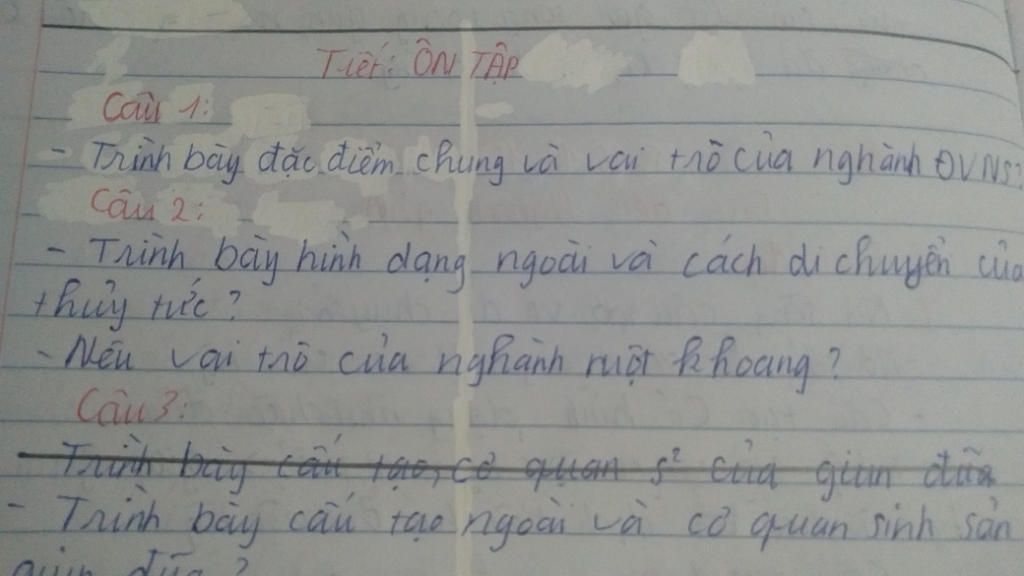 Tiết: ÔN TẬP
Câu 1:
- Trình bày đặc điểm chung và vai trò của nghành ĐVNS?
Câu 2:
- Trình bày hình dạng ngoài và cách di chuyển của
thủy tức?
- Nêu vai trò của nghành ruột khoang?
Câu 3:
Trình bày cấu tạo, cơ quan s² của giun đũa
- Trình bày cấu tạo ngoài và cơ quan sinh sản
giun đũa?